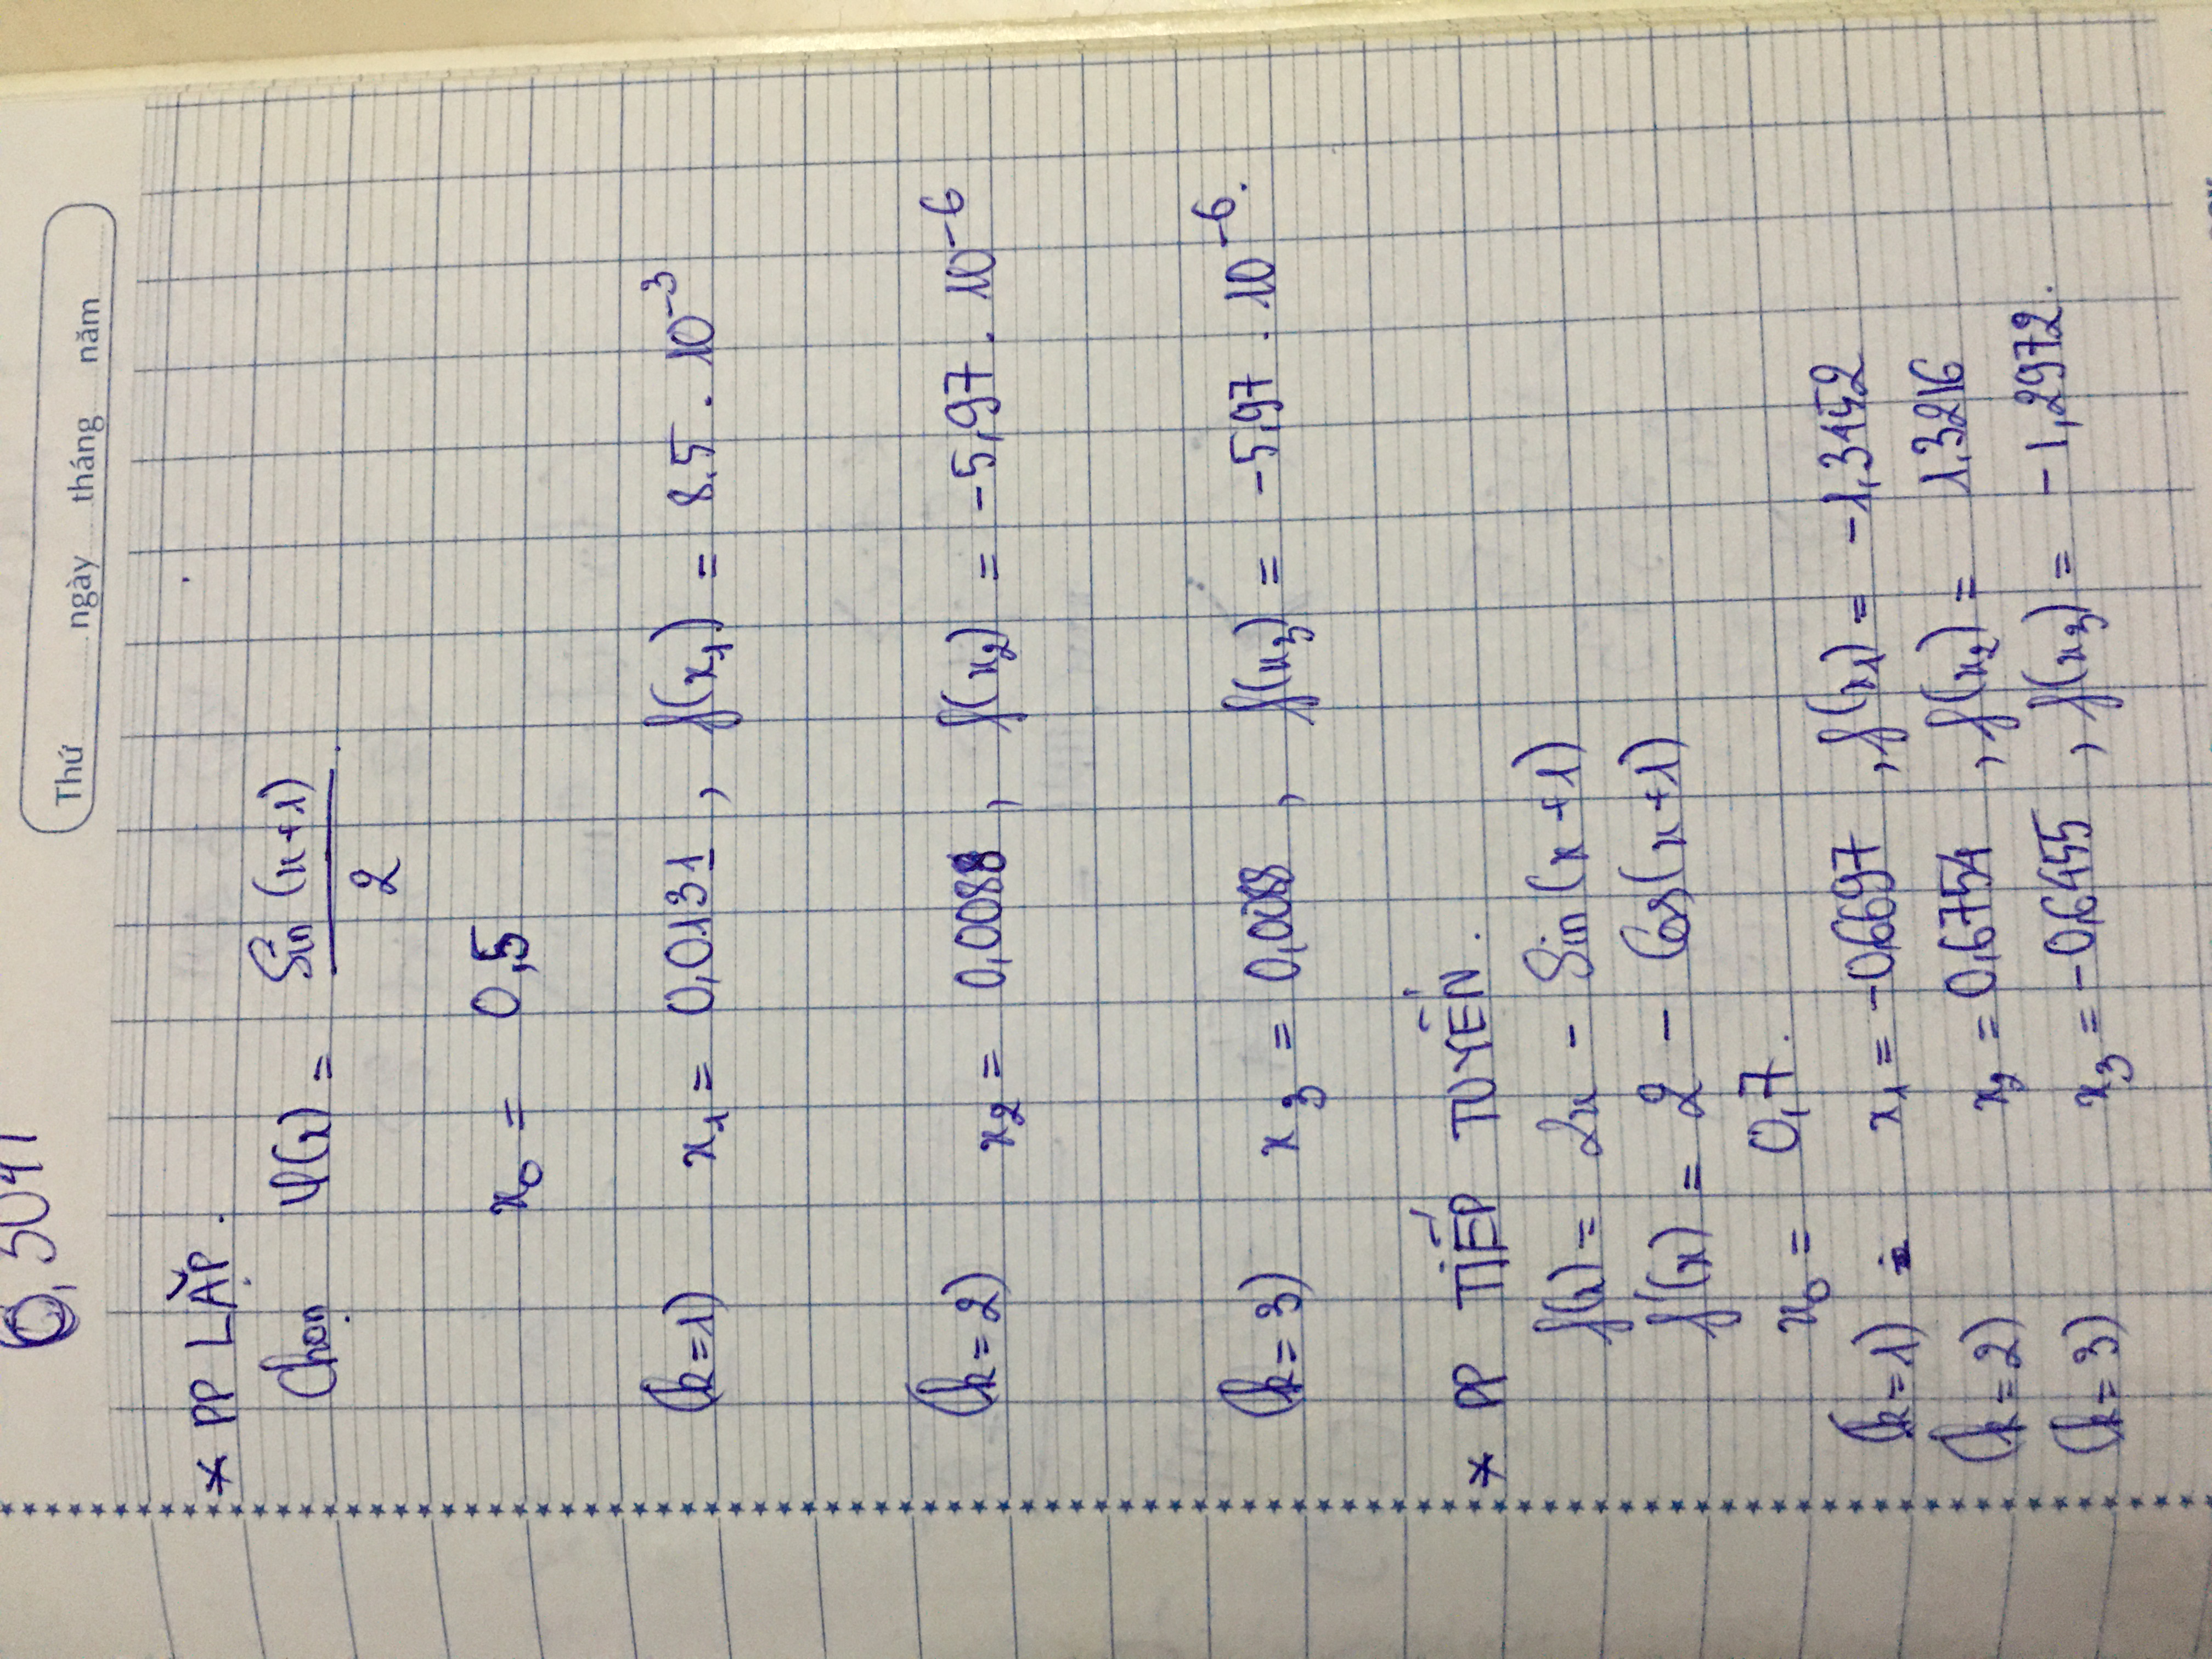 0,5041
Thứ ngày tháng năm
* PP LẶP.
Chọn φ(x) = Sin (x+1) / 2
x₀ = 0,5
(k=1) x₁ = 0,0131 , f(x₁) = 8.5 . 10⁻³
(k=2) x₂ = 0,0088 , f(x₂) = -5,97 . 10⁻⁶
(k=3) x₃ = 0,0088 , f(x₃) = -5,97 . 10⁻⁶.
* PP TIẾP TUYẾN.
f(x) = 2x - Sin(x+1)
f'(x) = 2 - Cos(x+1)
x₀ = 0,7.
(k=1) = x₁ = -0,6697 , f(x₁) = -1,3452
(k=2) x₂ = 0,6754 , f(x₂) = 1,3216
(k=3) x₃ = -0,6455 , f(x₃) = -1,2972.